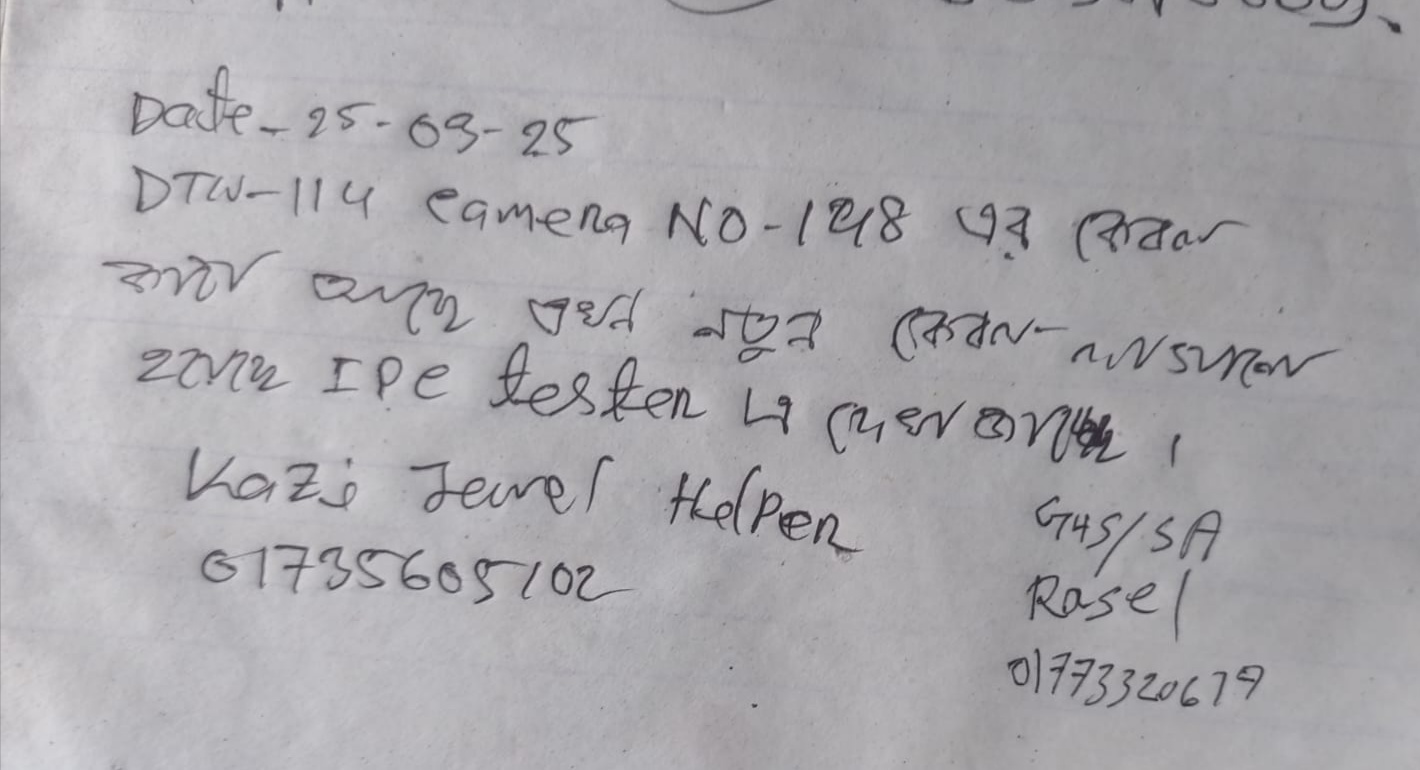 Date - 25-03-25
DTW-114 Camera NO-148 এর কেবল
কাটা আছে এখন নতুন কেবল লাগানো
হয়েছে IPC tester এ দেখা
Kazi Jewel Helper
01735605102
G4S/SA
Rasel
01773320679